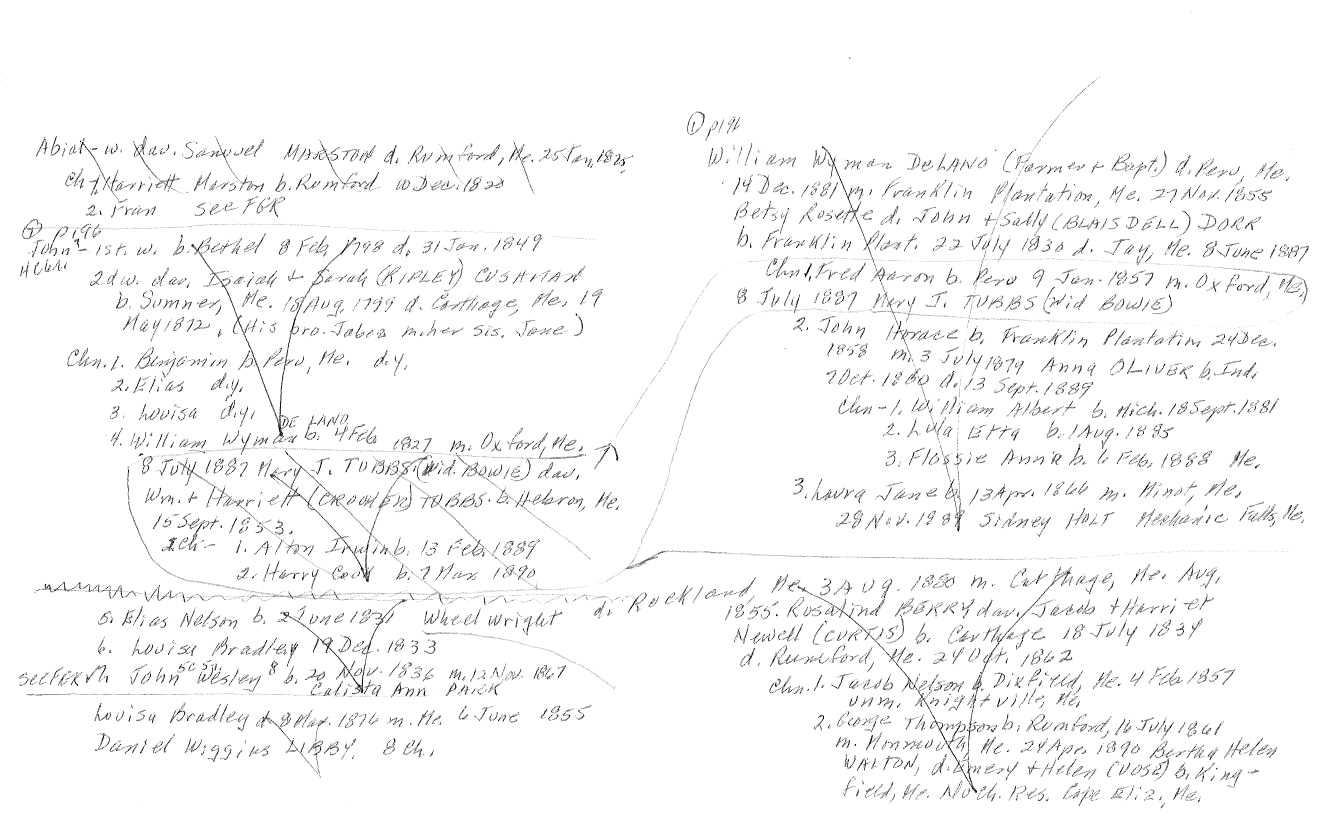 Abial - w. dau. Samuel MARSTON d. Rumford, Me. 25 Jan. 1825.
Ch 1 Harriett Marston b. Rumford 10 Dec. 1820
2. Fran see FGR
② p196
John - 1st. w. b. Bethel 8 Feb. 1798 d. 31 Jan. 1849
2d w. dau. Isaiah + Sarah (RIPLEY) CUSHMAN
b. Sumner, Me. 18 Aug. 1799 d. Carthage, Me. 19
May 1872. (His bro. Jabez m. her sis. Jane)
Chn. 1. Benjamin b. Peru, Me. d.y.
2. Elias d.y.
3. Louisa d.y.
DE LANO
4. William Wyman b. 4 Feb 1827 m. Oxford, Me.
8 July 1887 Mary J. TUBBS (Wid. BOWIE) dau.
Wm. + Harriett (CROOKER) TUBBS b. Hebron, Me.
15 Sept. 1853.
2 Ch - 1. Alton Irwin b. 13 Feb. 1889
2. Harry b. 7 Mar 1890
5. Elias Nelson b. 2 June 1831 Wheelwright
6. Louisa Bradley 19 Dec. 1833
see FGR 7. John Wesley 8 b. 20 Nov. 1836 m. 12 Nov. 1867
Calista Ann PRICK
Louisa Bradley d. 8 Mar. 1876 m. Me. 6 June 1855
Daniel Wiggins LIBBY. 8 Ch.
① p196
William Wyman DELANO (Farmer + Bapt.) d. Peru, Me.
14 Dec. 1881 m. Franklin Plantation, Me. 27 Nov. 1855
Betsy Rosette d. John + Sally (BLAISDELL) DORR
b. Franklin Plant. 22 July 1830 d. Jay, Me. 8 June 1887
Chn 1. Fred Aaron b. Peru 9 Jan. 1857 m. Oxford, Me.
8 July 1887 Mary J. TUBBS (Wid BOWIE)
2. John Horace b. Franklin Plantation 24 Dec.
1858 m. 3 July 1879 Anna OLIVER b. Ind.
7 Oct. 1860 d. 13 Sept. 1889
Chn - 1. William Albert b. Mich. 18 Sept. 1881
2. Lula Etta b. 1 Aug. 1885
3. Flossie Anna b. 6 Feb. 1888 Me.
3. Laura Jane b. 13 Apr. 1866 m. Minot, Me.
28 Nov. 1889 Sidney HOLT Mechanic Falls, Me.
d. Rockland, Me. 3 Aug. 1880 m. Carthage, Me. Aug.
1855. Rosalind BERRY dau. Jacob + Harriet
Newell (CURTIS) b. Carthage 18 July 1834
d. Rumford, Me. 24 Oct. 1862
Chn. 1. Jacob Nelson b. Dixfield, Me. 4 Feb. 1857
unm. Knightville, Me.
2. George Thompson b. Rumford, 16 July 1861
m. Monmouth, Me. 24 Apr. 1890 Bertha Helen
WALTON, d. Emery + Helen (VOSE) b. King-
field, Me. No Ch. Res. Cape Eliz., Me.